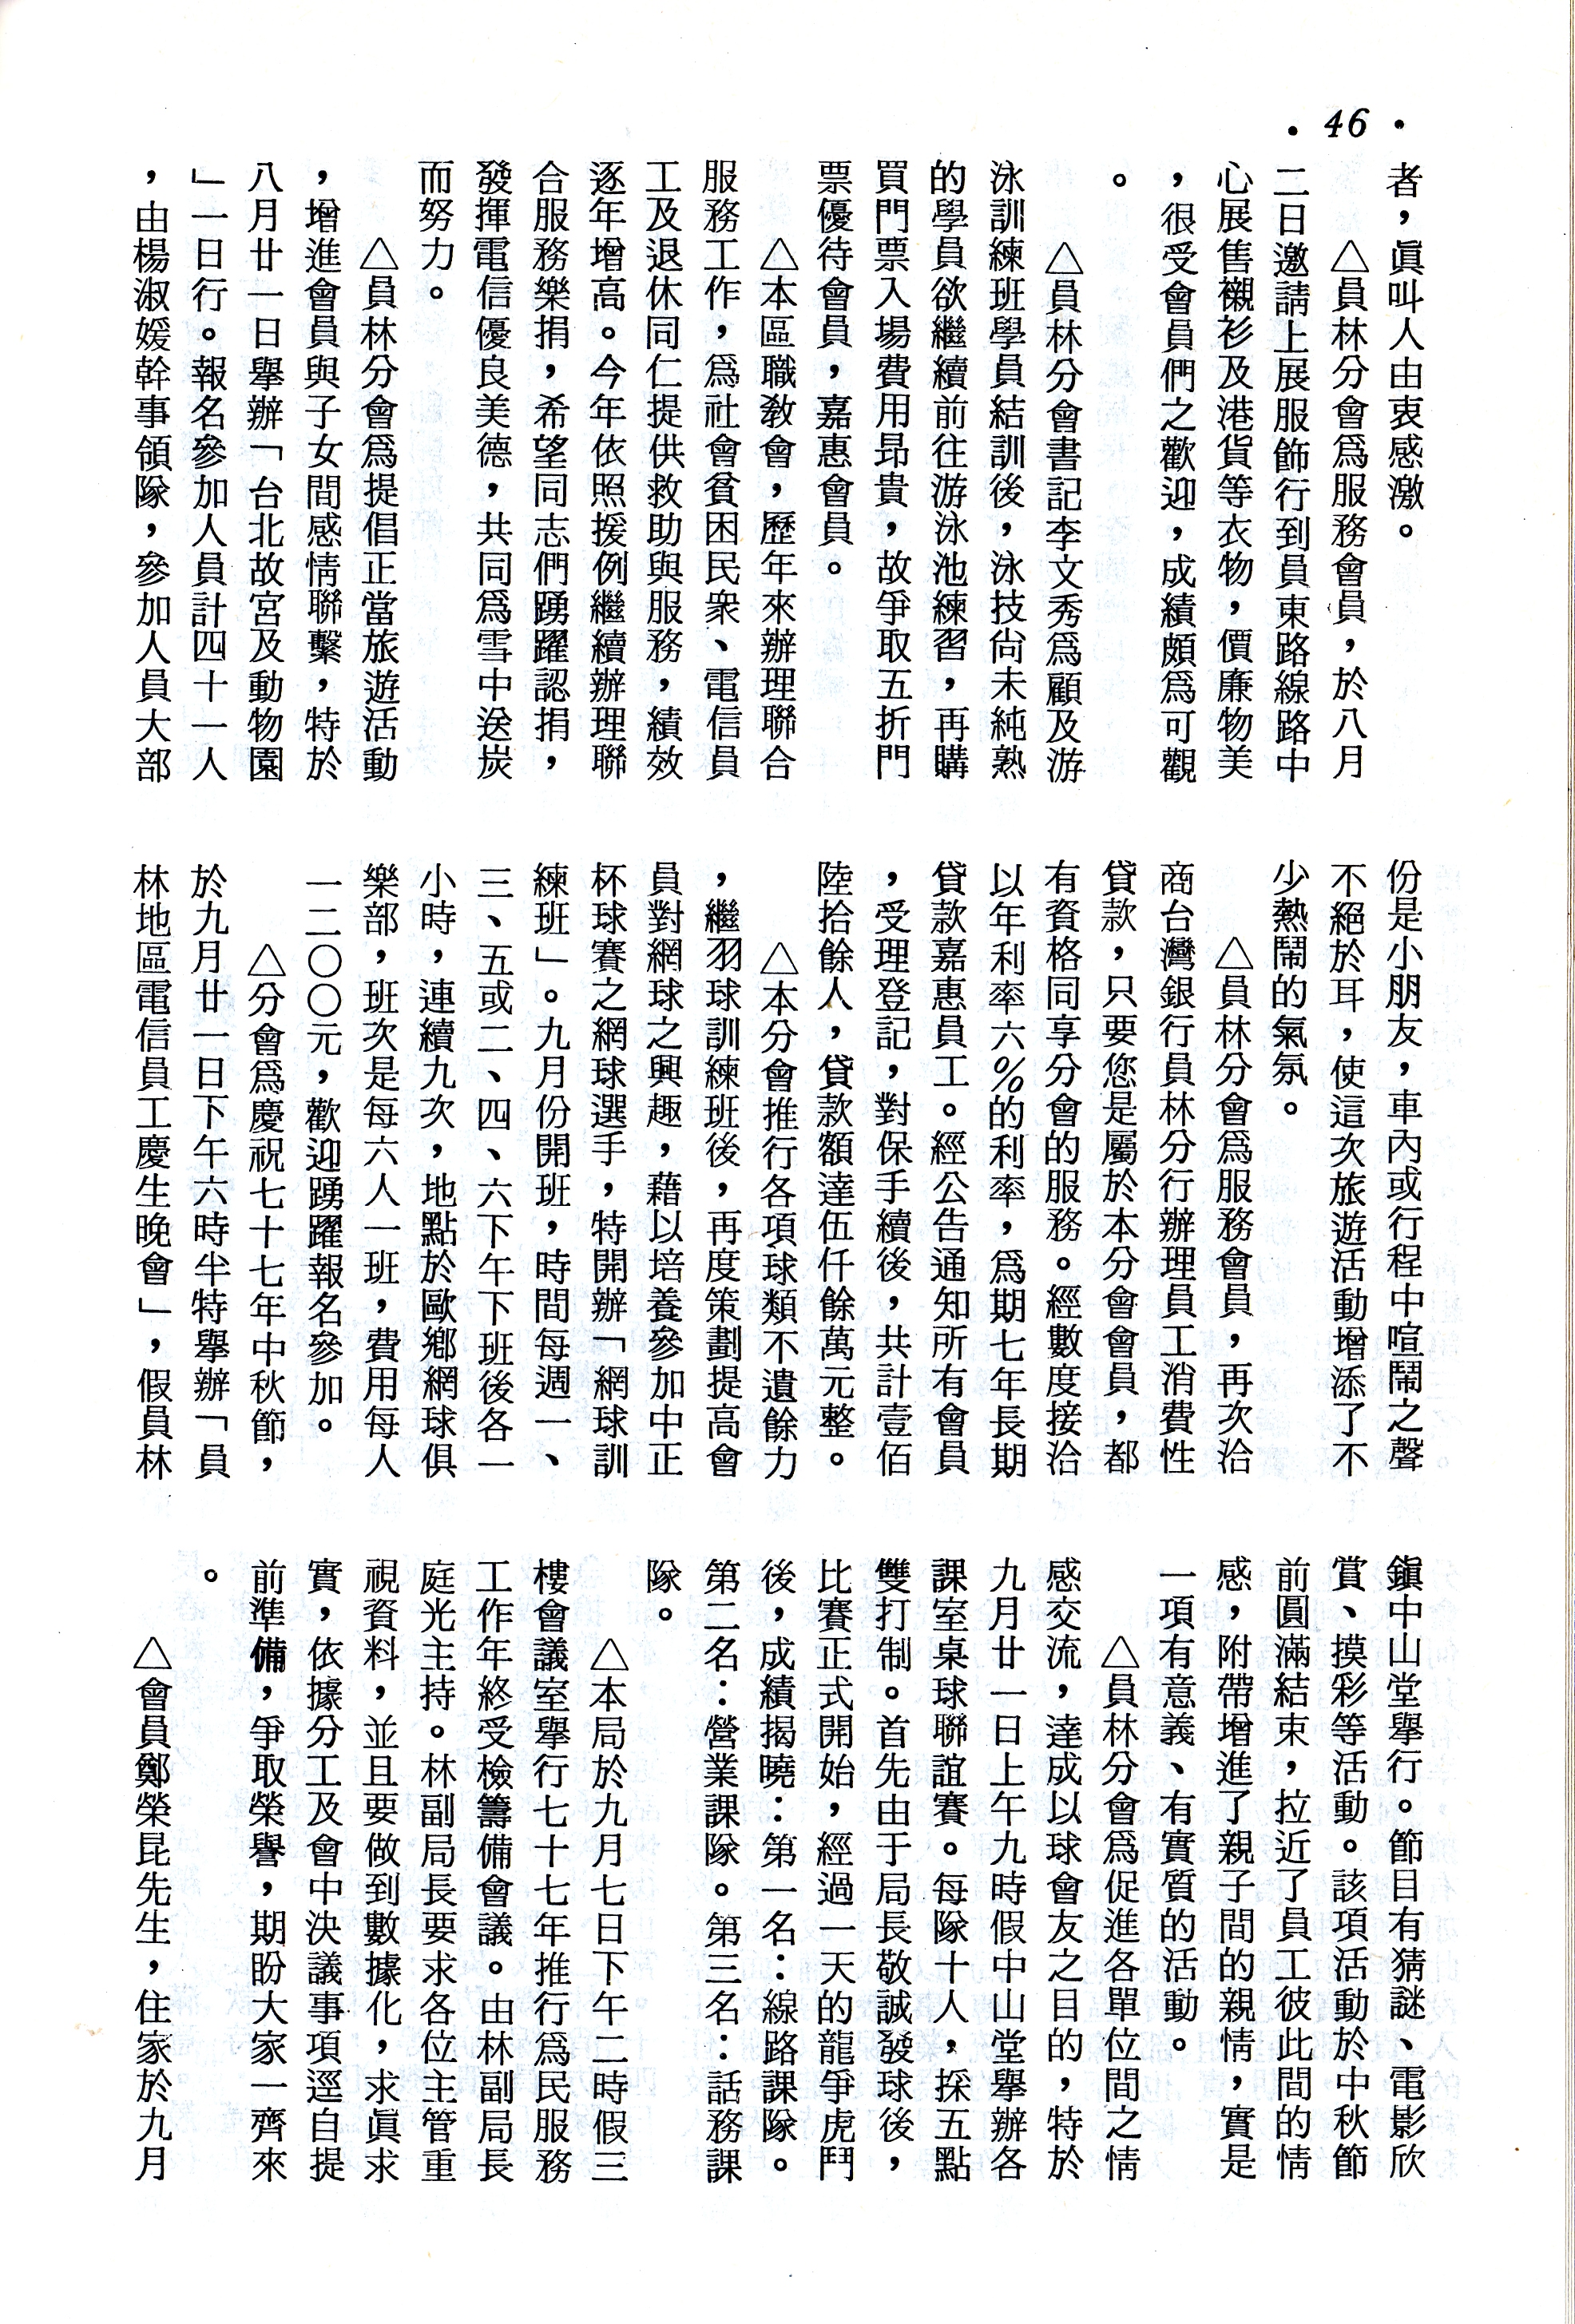 • 46 •
者，眞叫人由衷感激。
△員林分會爲服務會員，於八月
二日邀請上展服飾行到員東路線路中
心展售襯衫及港貨等衣物，價廉物美
，很受會員們之歡迎，成績頗爲可觀
。
△員林分會書記李文秀爲顧及游
泳訓練班學員結訓後，泳技尙未純熟
的學員欲繼續前往游泳池練習，再購
買門票入場費用昂貴，故爭取五折門
票優待會員，嘉惠會員。
△本區職教會，歷年來辦理聯合
服務工作，爲社會貧困民衆、電信員
工及退休同仁提供救助與服務，績效
逐年增高。今年依照援例繼續辦理聯
合服務樂捐，希望同志們踴躍認捐，
發揮電信優良美德，共同爲雪中送炭
而努力。
△員林分會爲提倡正當旅遊活動
，增進會員與子女間感情聯繫，特於
八月廿一日舉辦「台北故宮及動物園
」一日行。報名參加人員計四十一人
，由楊淑媛幹事領隊，參加人員大部
份是小朋友，車內或行程中喧鬧之聲
不絕於耳，使這次旅遊活動增添了不
少熱鬧的氣氛。
△員林分會爲服務會員，再次洽
商台灣銀行員林分行辦理員工消費性
貸款，只要您是屬於本分會會員，都
有資格同享分會的服務。經數度接洽
以年利率六％的利率，爲期七年長期
貸款嘉惠員工。經公告通知所有會員
，受理登記，對保手續後，共計壹佰
陸拾餘人，貸款額達伍仟餘萬元整。
△本分會推行各項球類不遺餘力
，繼羽球訓練班後，再度策劃提高會
員對網球之興趣，藉以培養參加中正
杯球賽之網球選手，特開辦「網球訓
練班」。九月份開班，時間每週一、
三、五或二、四、六下午下班後各一
小時，連續九次，地點於歐鄉網球俱
樂部，班次是每六人一班，費用每人
一二〇〇元，歡迎踴躍報名參加。
△分會爲慶祝七十七年中秋節，
於九月廿一日下午六時半特舉辦「員
林地區電信員工慶生晚會」，假員林
鎭中山堂舉行。節目有猜謎、電影欣
賞、摸彩等活動。該項活動於中秋節
前圓滿結束，拉近了員工彼此間的情
感，附帶增進了親子間的親情，實是
一項有意義、有實質的活動。
△員林分會爲促進各單位間之情
感交流，達成以球會友之目的，特於
九月廿一日上午九時假中山堂舉辦各
課室桌球聯誼賽。每隊十人，採五點
雙打制。首先由于局長敬誠發球後，
比賽正式開始，經過一天的龍爭虎鬥
後，成績揭曉：第一名：線路課隊。
第二名：營業課隊。第三名：話務課
隊。
△本局於九月七日下午二時假三
樓會議室舉行七十七年推行爲民服務
工作年終受檢籌備會議。由林副局長
庭光主持。林副局長要求各位主管重
視資料，並且要做到數據化，求眞求
實，依據分工及會中決議事項逕自提
前準備，爭取榮譽，期盼大家一齊來
。
△會員鄭榮昆先生，住家於九月